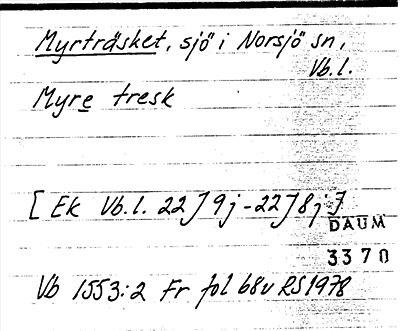 Myrträsket, sjö i Norsjö sn,
Vb.l.
Myre tresk
[Ek Vb.l. 22J9j-22J8j]
DAUM
3370
Vb 1553:2 Fr fol 68v RS 1978